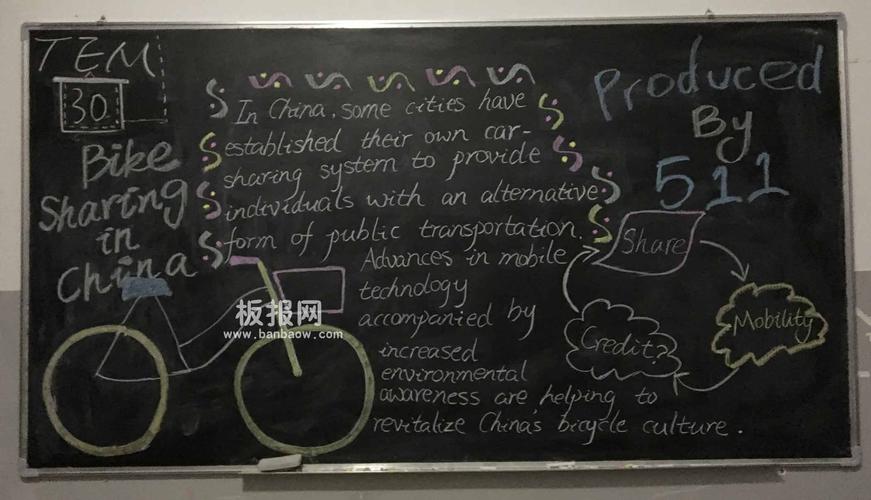 TEM
30
Bike
Sharing
in
China
In China, some cities have
established their own car-
sharing system to provide
individuals with an alternative
form of public transportation.
Advances in mobile
technology
accompanied by
increased
environmental
awareness are helping to
revitalize China's bicycle culture.
Produced
By
511
Share
Mobility
Credit?
板报网
www.banbaow.com